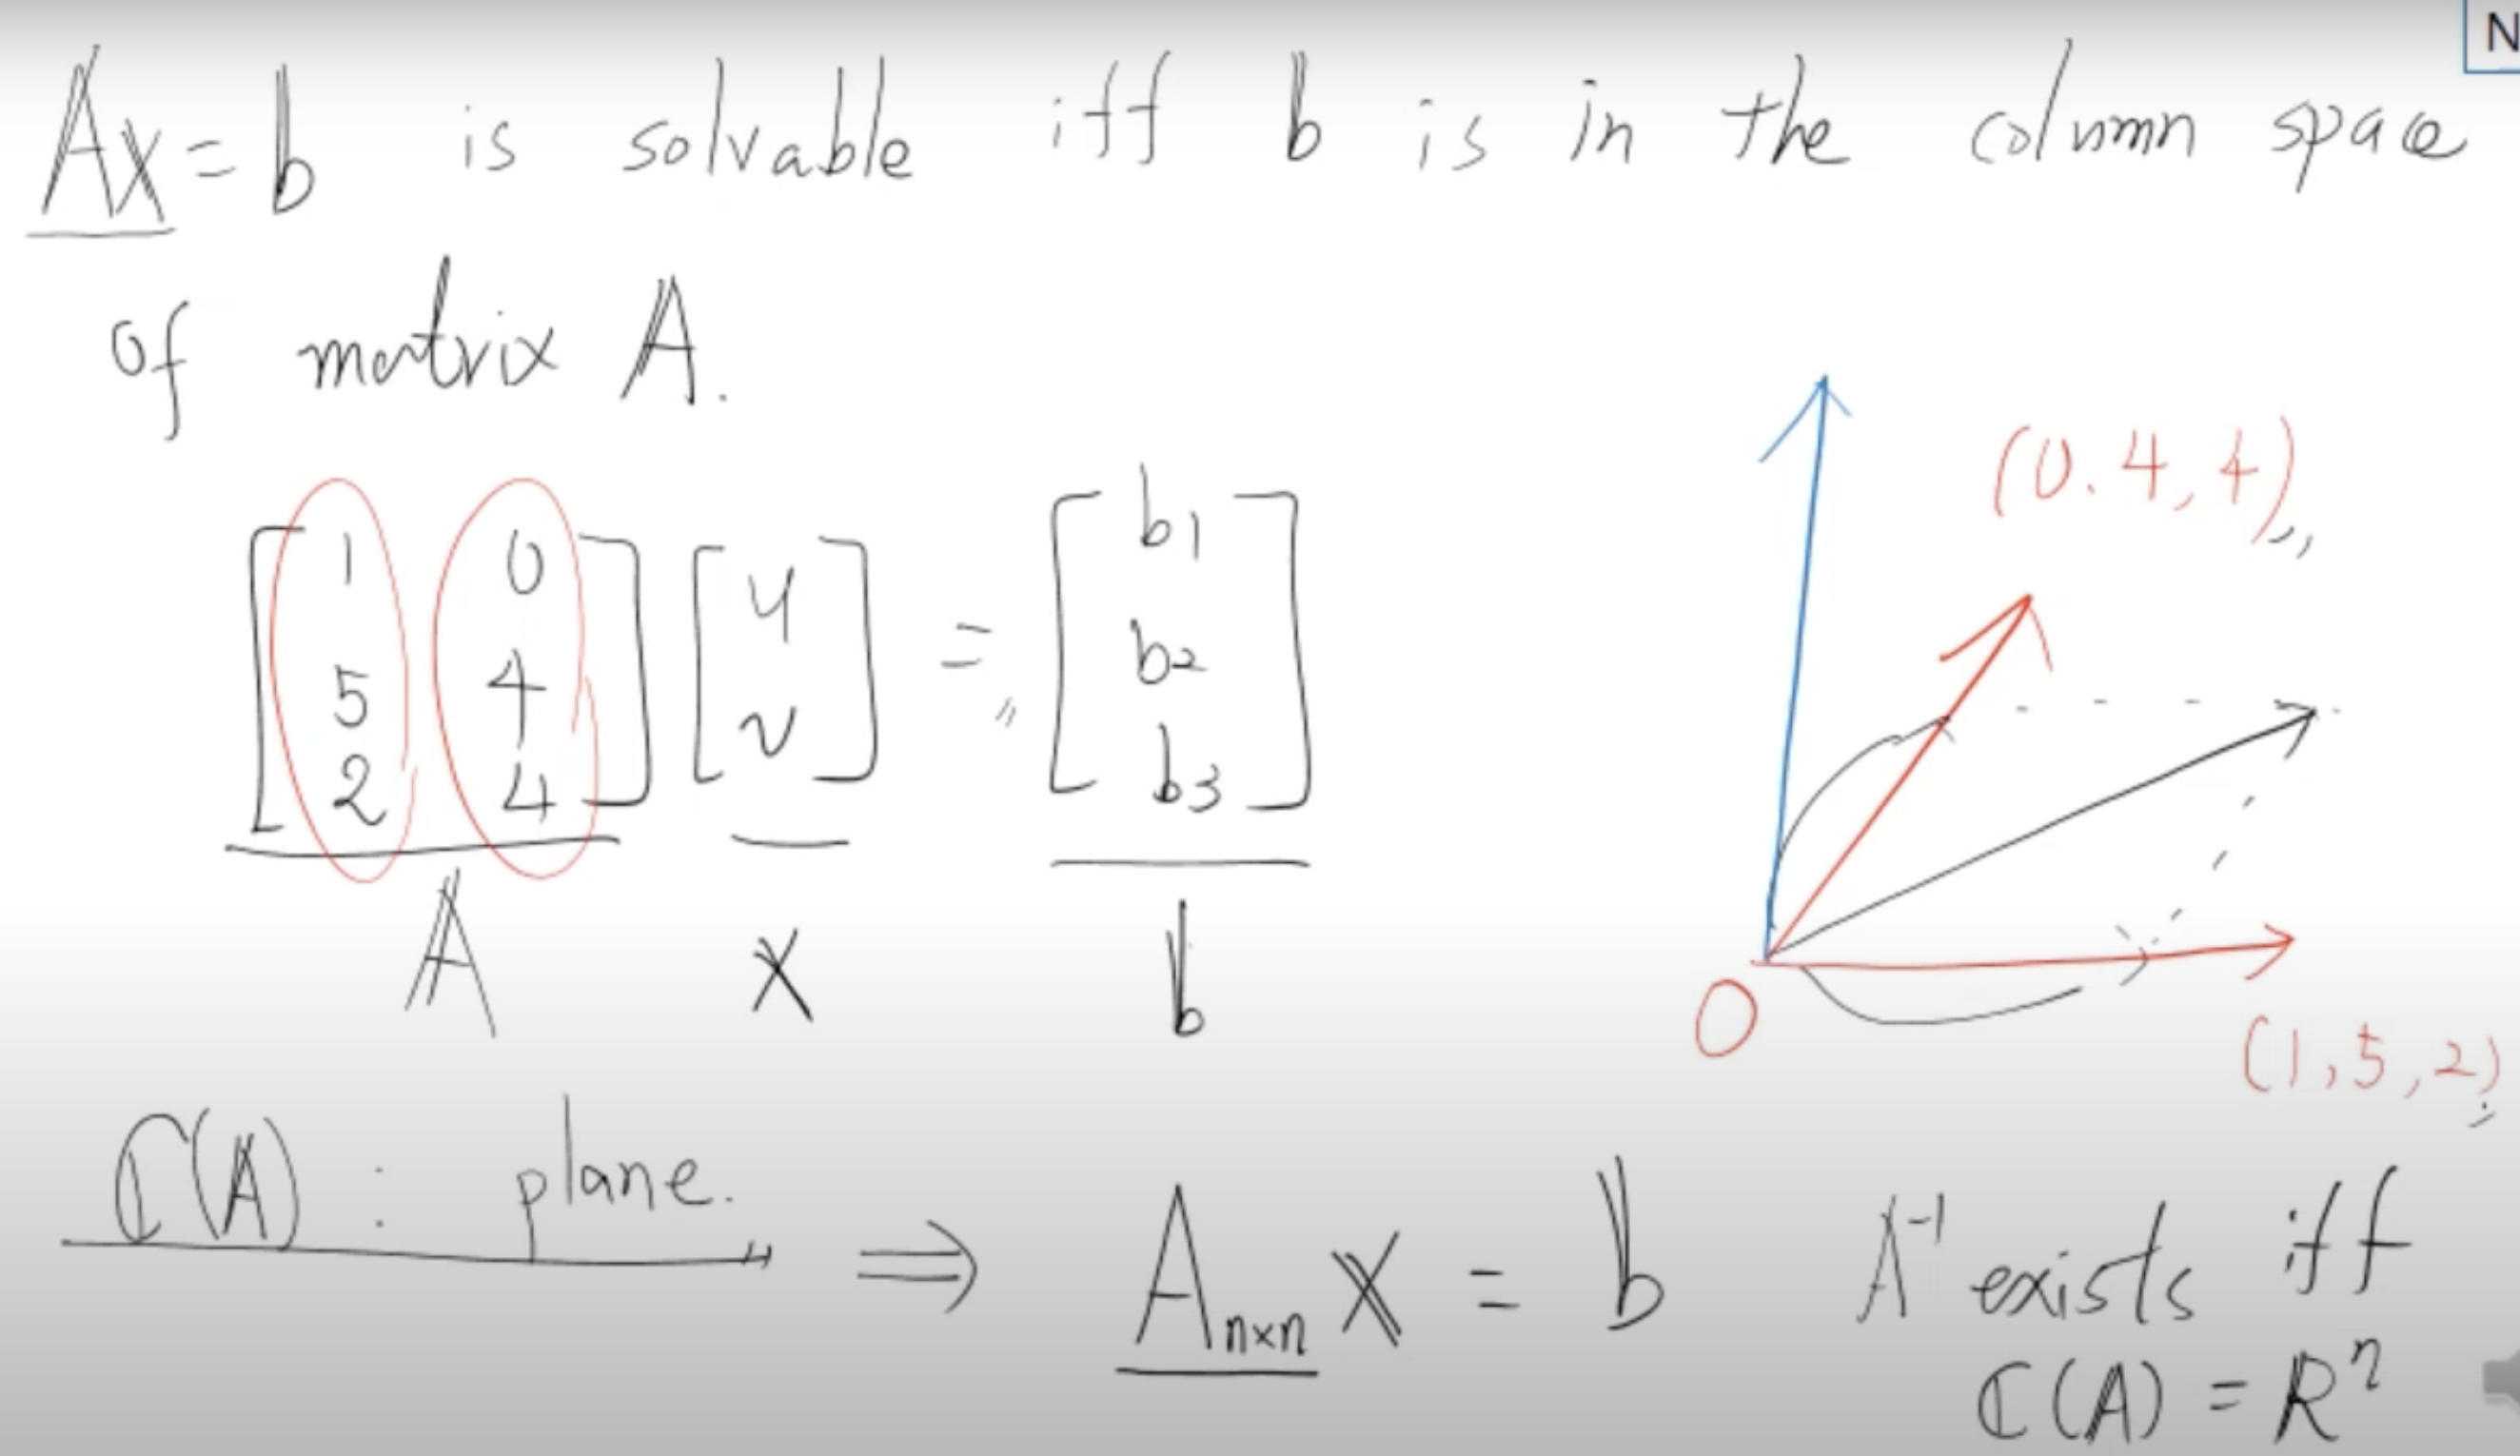 Ax = b is solvable iff b is in the column space
of matrix A.
N
(0. 4, 4)
[1 0; 5 4; 2 4] [u; v] = [b1; b2; b3]
A x b
O
(1, 5, 2)
C(A) : plane. ⇒ Aₙₓₙ x = b A⁻¹ exists iff
C(A) = Rⁿ